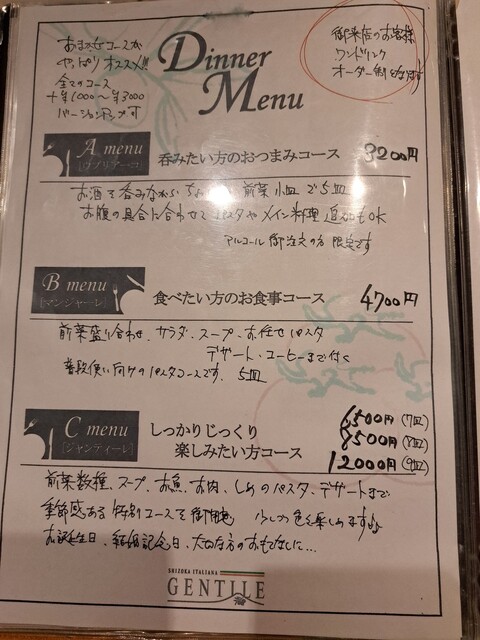 おまかせコースが
やっぱりオススメ!!
全てのコース
+¥1000~¥3000
バージョンアップ可
Dinner
Menu
御来店のお客様
ワンドリンク
オーダー制となります
A menu
[ウブリアーコ]
呑みたい方のおつまみコース 3200円
お酒を呑みながら 前菜小皿で5皿
お腹の具合に合わせてパスタやメイン料理追加もOK
アルコール御注文の方限定です
B menu
[マンジャーレ]
食べたい方のお食事コース 4700円
前菜盛り合わせ、サラダ、スープ、お任せパスタ
デザート、コーヒーまで付く
普段使い向けのパスタコースです。5皿
C menu
[ジャンティーレ]
しっかりじっくり
楽しみたい方コース
6500円(7皿)
8500円(8皿)
12000円(9皿)
前菜数種、スープ、お魚、お肉、しめのパスタ、デザートまで
季節感ある特別コースを御用意
お誕生日、結婚記念日、大切な方のおもてなしに...
SHIZUOKA ITALIANA
GENTILE